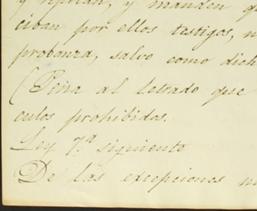 y repitan, y manden q
ciban por ellos testigos, n
probanza, salvo como dich
(Pena al letrado que
culos prohibidos.
Ley 7.ª siguiente
De las excepciones